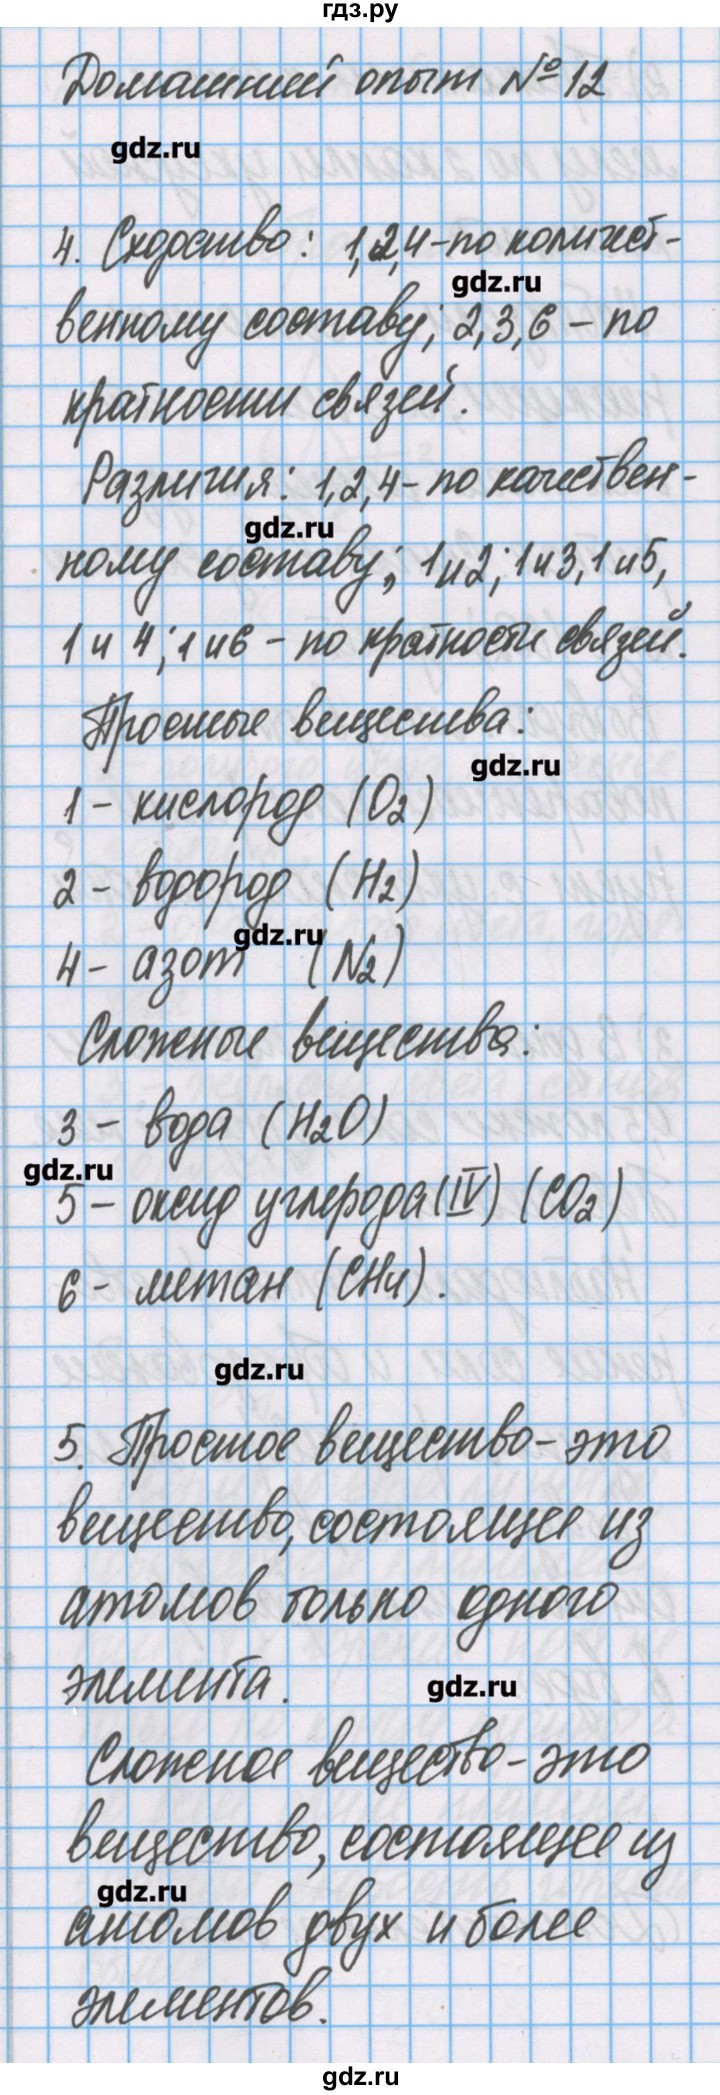 гдз.ру
Домашний опыт № 12
gdz.ru
4. Сходство: 1,2,4-по количест-
gdz.ru
венному составу; 2,3,6 - по
кратности связей.
Различия: 1,2,4-по качествен-
gdz.ru
ному составу; 1и2; 1и3, 1и5,
1 и 4; 1 и 6 - по кратности связей.
Простые вещества:
gdz.ru
1 - кислород (O₂)
2 - водород (H₂)
gdz.ru
4 - азот (N₂)
Сложные вещества:
3 - вода (H₂O)
gdz.ru
5 - оксид углерода (IV) (CO₂)
6 - метан (CH₄).
gdz.ru
5. Простое вещество-это
вещество, состоящее из
атомов только одного
элемента.
gdz.ru
Сложное вещество-это
вещество, состоящее из
gdz.ru
атомов двух и более
элементов.
gdz.ru